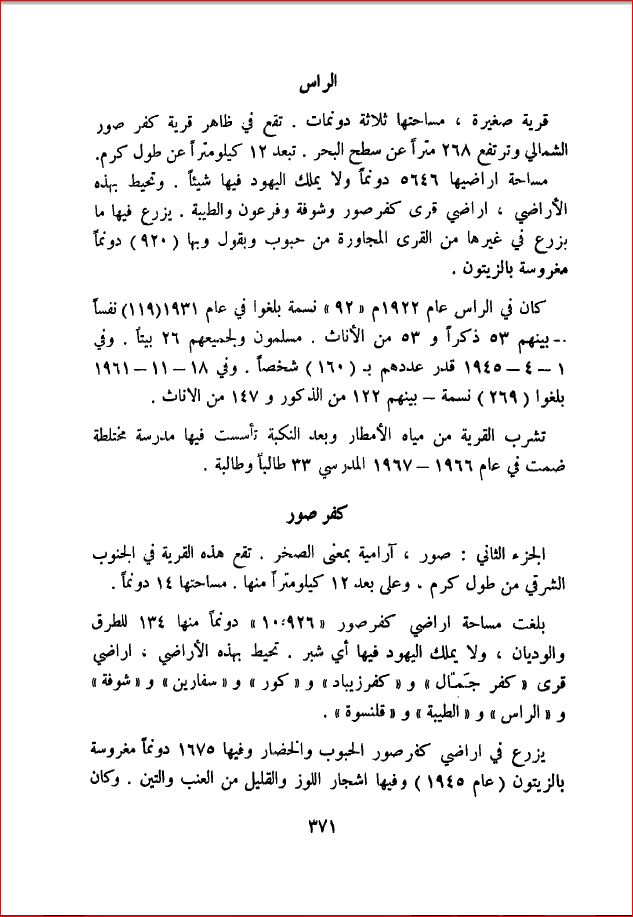 الراس
قرية صغيرة ، مساحتها ثلاثة دونمات . تقع في ظاهر قرية كفر صور
الشمالي وترتفع ٢٦٨ متراً عن سطح البحر . تبعد ١٢ كيلومتراً عن طول كرم.
مساحة اراضيها ٥٦٤٦ دونماً ولا يملك اليهود فيها شيئاً . وتحيط بهذه
الأراضي ، اراضي قرى كفرصور وشوفة وفرعون والطيبة . يزرع فيها ما
يزرع في غيرها من القرى المجاورة من حبوب وبقول وبها (٩٢٠) دونماً
مغروسة بالزيتون .
كان في الراس عام ١٩٢٢م «٩٢» نسمة بلغوا في عام ١٩٣١(١١٩) نفساً
.- بينهم ٥٣ ذكراً و ٥٣ من الأناث . مسلمون ولجميعهم ٢٦ بيتاً . وفي
١ – ٤ – ١٩٤٥ قدر عددهم بـ (١٦٠) شخصاً . وفي ١٨ – ١١ – ١٩٦١
بلغوا (٢٦٩) نسمة – بينهم ١٢٢ من الذكور و ١٤٧ من الاناث .
تشرب القرية من مياه الأمطار وبعد النكبة تأسست فيها مدرسة مختلطة
ضمت في عام ١٩٦٦ – ١٩٦٧ المدرسي ٣٣ طالباً وطالبة .
كفر صور
الجزء الثاني : صور ، آرامية بمعنى الصخر . تقع هذه القرية في الجنوب
الشرقي من طول كرم . وعلى بعد ١٢ كيلومتراً منها . مساحتها ١٤ دونماً .
بلغت مساحة اراضي كفرصور «١٠،٩٢٦» دونماً منها ١٣٤ للطرق
والوديان ، ولا يملك اليهود فيها أي شبر . تحيط بهذه الأراضي ، اراضي
قرى «كفر جمّال» و «كفرزيباد» و «كور» و «سفارين» و «شوفة»
و «الراس» و «الطيبة» و «قلنسوة» .
يزرع في اراضي كفرصور الحبوب والخضار وفيها ١٦٧٥ دونماً مغروسة
بالزيتون (عام ١٩٤٥) وفيها اشجار اللوز والقليل من العنب والتين . وكان
٣٧١